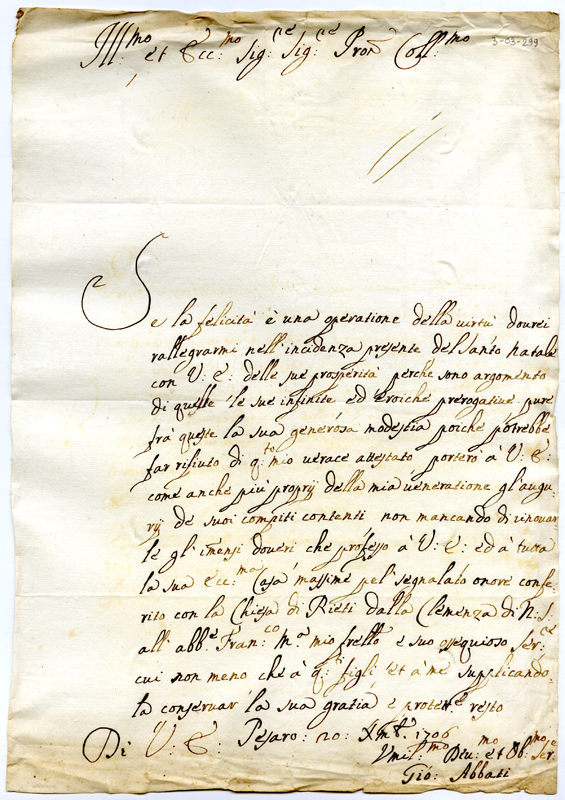 Ill:mo et Ecc:mo Sig:re Sig:re Pron Coll:mo
3-03-299
Se la felicità è una operatione della virtù dourei
rallegrarmi nell'incidenza presente del Santo Natale
con V: E: delle sue prosperità perche sono argomento
di quelle le sue infinite ed eroiche prerogative pure
frà queste la sua generosa modestia poiche potrebbe
far rifiuto di q:to mio verace attestato porterò à V: E:
come anche più proprij della mia veneratione gl'augu-
rij de suoi compiti contenti non mancando di rinouar
le gl'immensi doueri che professo à V: E: ed à tutta
la sua Ecc:ma Casa massime pel segnalato onore confe-
rito con la Chiesa di Rieti dalla Clemenza di N: S:
all'abb:e Fran:co M:a mio frello e suo ossequioso ser:re
cui non meno che à q:i figli et à me supplicando-
la conseruar la sua gratia e protett:e resto
Di V: E: Pesaro: 20: Xmb:e 1706
Vmil:mo Diu:mo et Ob:mo Ser:e
Gio: Abbati